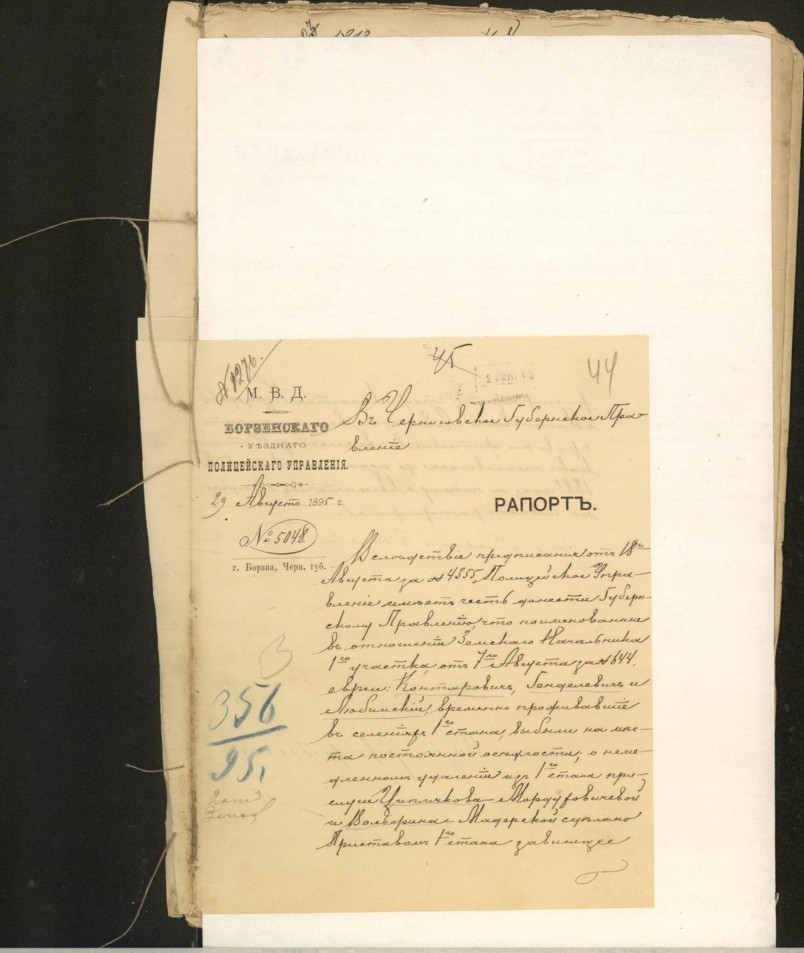 45
44
№ 1276.
М. В. Д.
БОРЗЕНСКАГО
УѢЗДНАГО
ПОЛИЦЕЙСКАГО УПРАВЛЕНІЯ.
29 Августа 1895 г.
№ 5048
г. Борзна, Черн. губ.
Въ Черниговское Губернское Пра-
вленіе
РАПОРТЪ.
Вслѣдствіе предписанія отъ 18го
Августа за № 4555, Полицейское Упра-
вленіе имѣетъ честь донести Губерн-
скому Правленію, что поименованные
въ отношеніи Земскаго Начальника
1го участка, отъ 7го Августа за № 644,
евреи: Контаровичъ, Генделевичъ и
Любинскій, временно проживавшіе
въ селеніяхъ 1го стана, выбыли на мѣс-
та постоянной осѣдлости; о неме-
дленномъ удаленіи изъ 1го стана при-
слуги Цыплякова Мордуховичевой
и Вольфрина Мадерской сдѣлано
Приставомъ 1го стана зависящее
3
356
95.